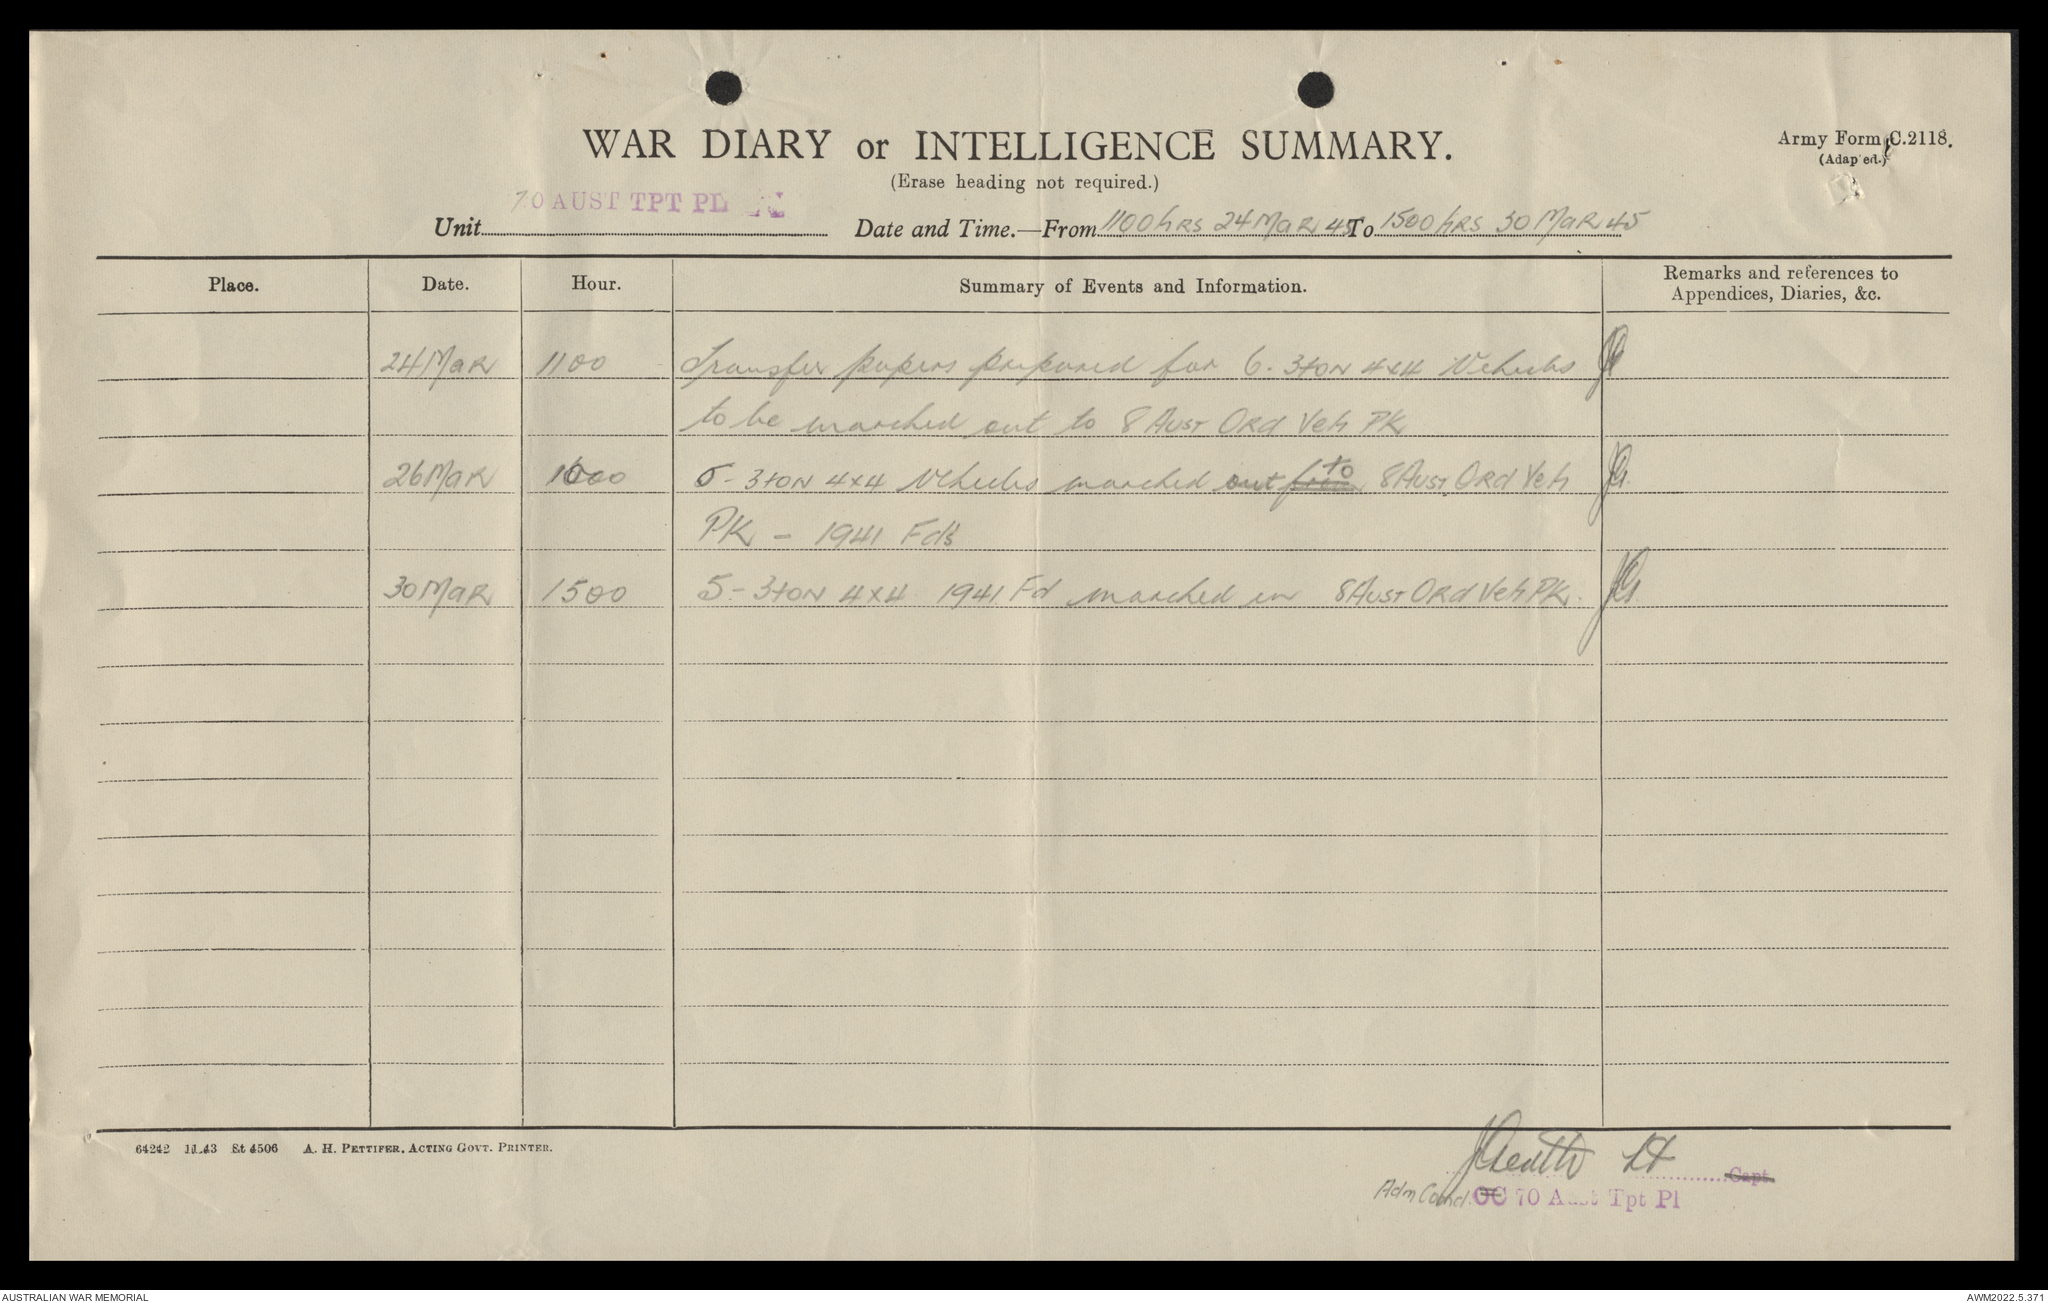 WAR DIARY or INTELLIGENCE SUMMARY.
Army Form C.2118.
(Adapted.)
(Erase heading not required.)
Unit 70 AUST TPT PL
Date and Time.—From 1100 hrs 24 Mar 45 To 1500 hrs 30 Mar 45
Place. Date. Hour. Summary of Events and Information. Remarks and references to Appendices, Diaries, &c.
24 Mar 1100 Transfer papers prepared for 6. 3 ton 4x4 Vehicles
to be marched out to 8 Aust Ord Veh Pk
26 Mar 1600 5 - 3 ton 4x4 Vehicles marched out from to 8 Aust Ord Veh
PK - 1941 Fds
30 Mar 1500 5 - 3 ton 4x4 1941 Fd marched in 8 Aust Ord Veh PK.
64242 11.43 St 4506 A. H. PETTIFER, ACTING GOVT. PRINTER.
Lt Capt
Adm Comd. OC 70 Aust Tpt Pl
AUSTRALIAN WAR MEMORIAL
AWM2022.5.371